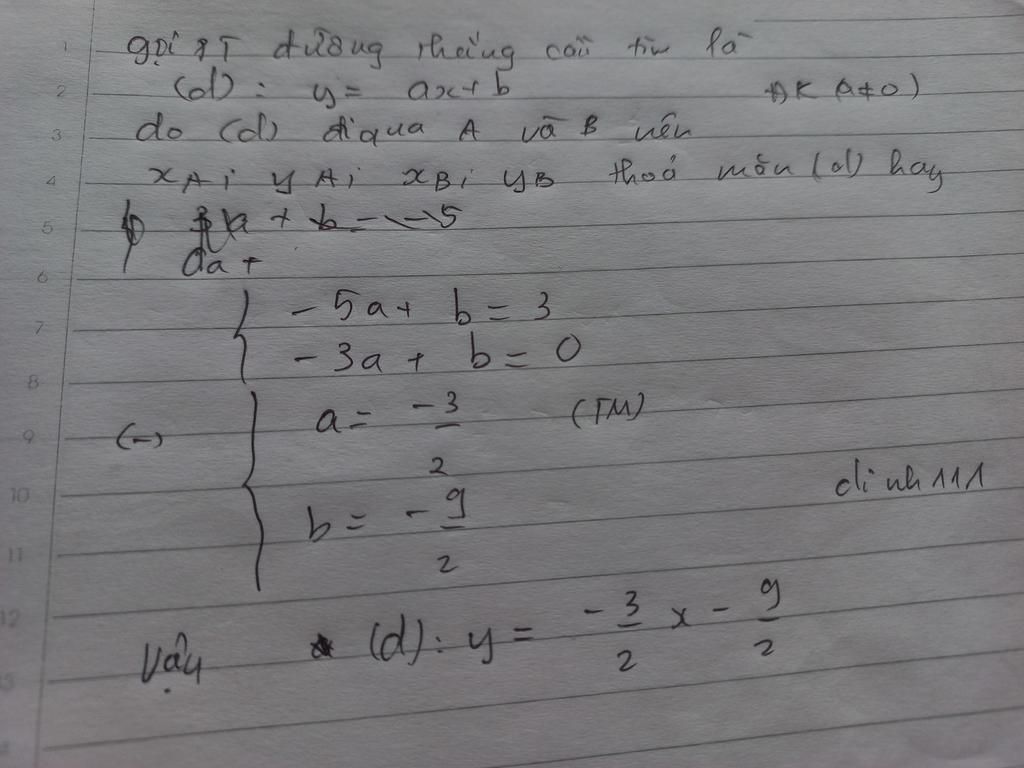 gọi PT đường thẳng cần tìm là
(d): y = ax + b ĐK (a ≠ 0)
do (d) đi qua A và B nên
xA; yA; xB; yB thoả mãn (d) hay
a + b = -5
a +
-5a + b = 3
-3a + b = 0
(-) a = -3/2 (TM)
b = -9/2
dinh111
Vậy (d): y = -3/2 x - 9/2